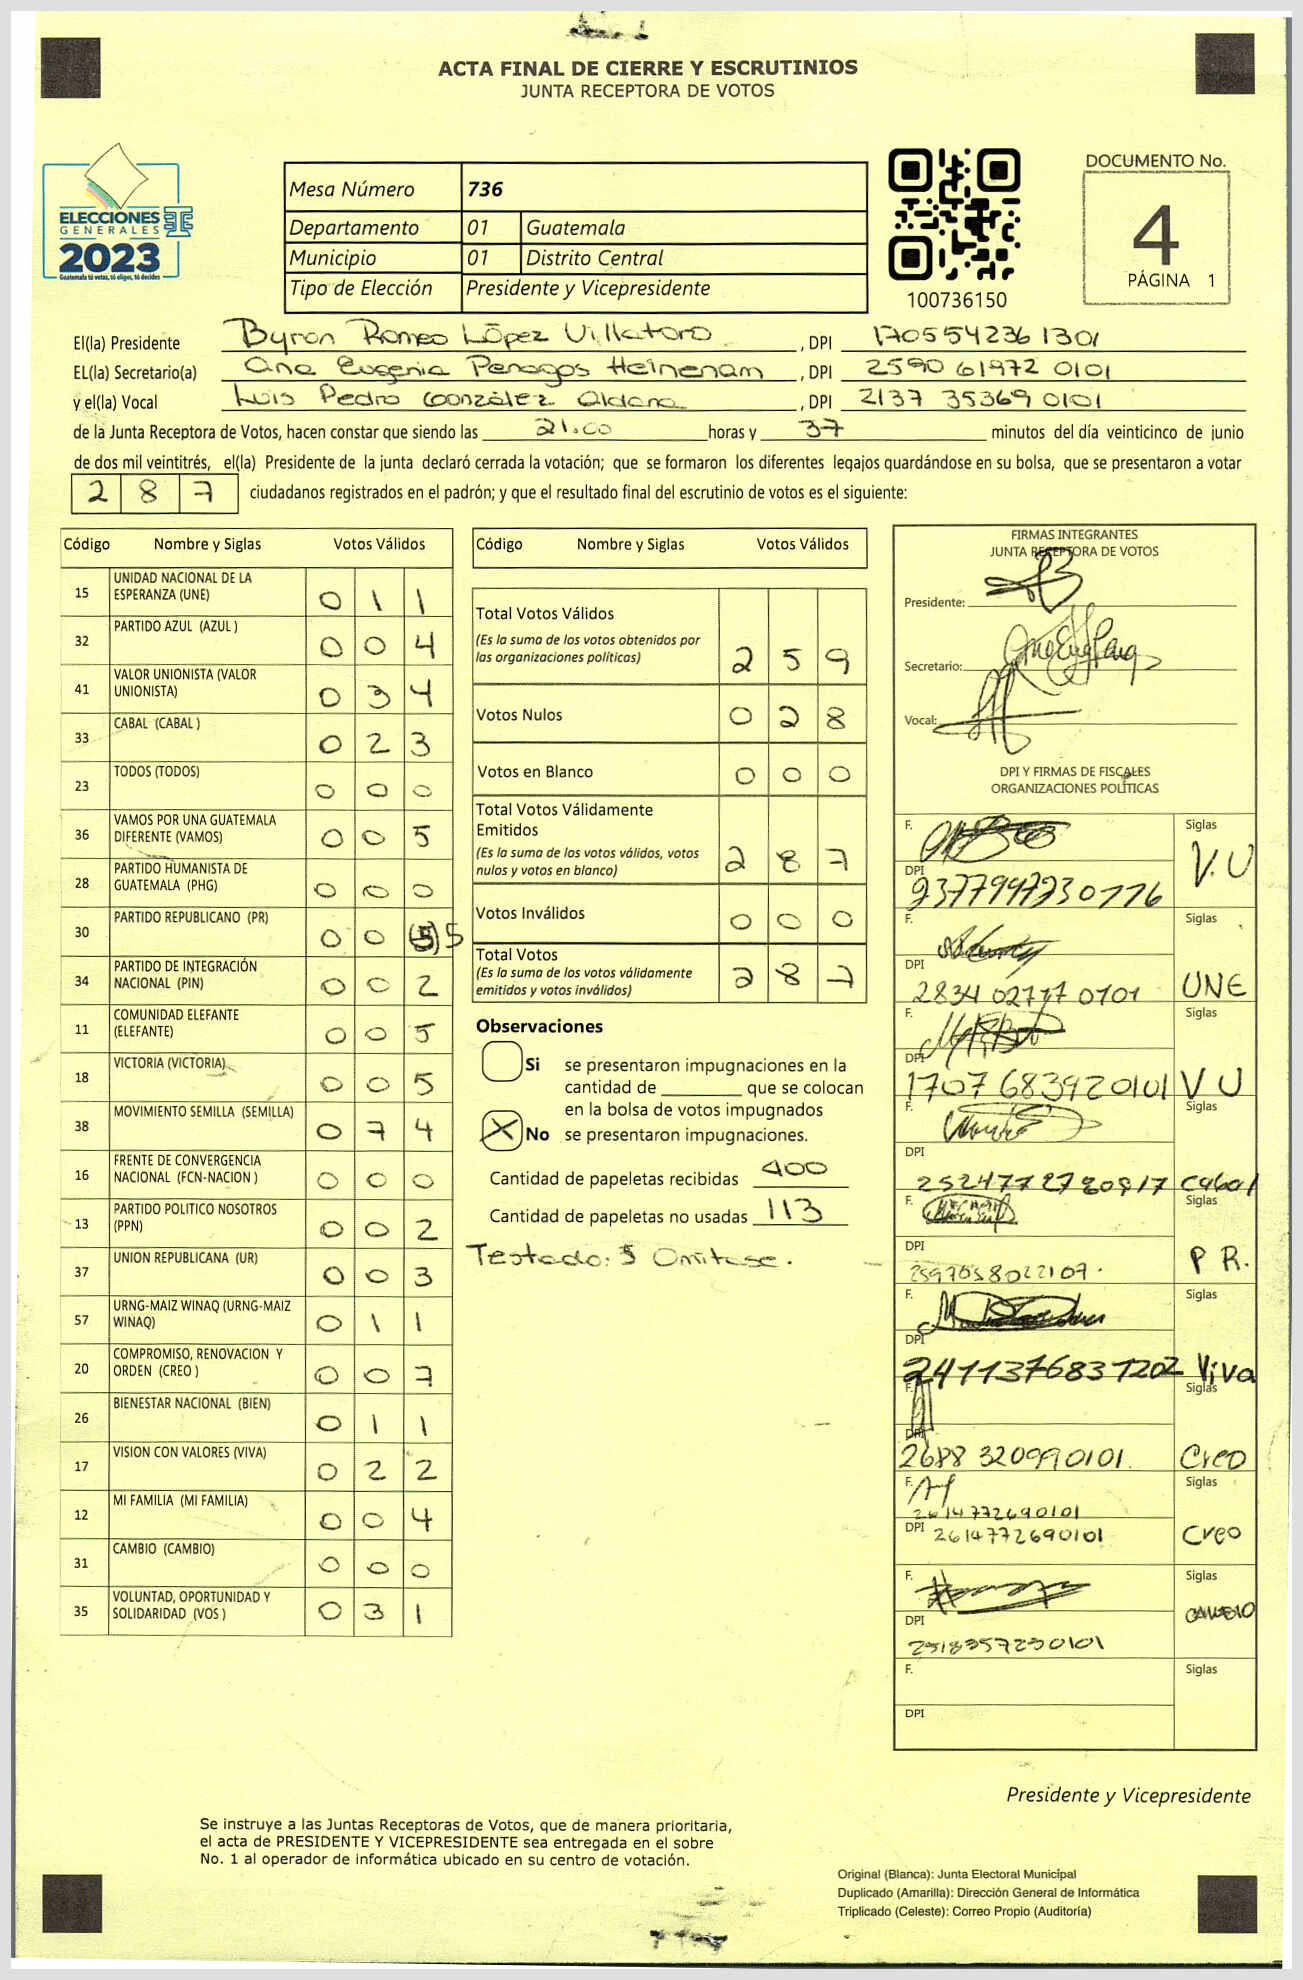 ACTA FINAL DE CIERRE Y ESCRUTINIOS
JUNTA RECEPTORA DE VOTOS
ELECCIONES
GENERALES
2023
Guatemala tú votas, tú eliges, tú decides
Mesa Número 736
Departamento 01 Guatemala
Municipio 01 Distrito Central
Tipo de Elección Presidente y Vicepresidente
100736150
DOCUMENTO No.
4
PÁGINA 1
El(la) Presidente Byron Romeo López Villatoro, DPI 170554236 1301
EL(la) Secretario(a) Ana Eugenia Penagos Heinenam, DPI 2590 61972 0101
y el(la) Vocal Luis Pedro González Aldana, DPI 2137 35369 0101
de la Junta Receptora de Votos, hacen constar que siendo las 21:00 horas y 37 minutos del día veinticinco de junio
de dos mil veintitrés, el(la) Presidente de la junta declaró cerrada la votación; que se formaron los diferentes legajos guardándose en su bolsa, que se presentaron a votar
2 8 7 ciudadanos registrados en el padrón; y que el resultado final del escrutinio de votos es el siguiente:
Código Nombre y Siglas Votos Válidos
15 UNIDAD NACIONAL DE LA ESPERANZA (UNE) 0 1 1
32 PARTIDO AZUL (AZUL ) 0 0 4
41 VALOR UNIONISTA (VALOR UNIONISTA) 0 3 4
33 CABAL (CABAL ) 0 2 3
23 TODOS (TODOS) 0 0 0
36 VAMOS POR UNA GUATEMALA DIFERENTE (VAMOS) 0 0 5
28 PARTIDO HUMANISTA DE GUATEMALA (PHG) 0 0 0
30 PARTIDO REPUBLICANO (PR) 0 0 (5) 5
34 PARTIDO DE INTEGRACIÓN NACIONAL (PIN) 0 0 2
11 COMUNIDAD ELEFANTE (ELEFANTE) 0 0 5
18 VICTORIA (VICTORIA) 0 0 5
38 MOVIMIENTO SEMILLA (SEMILLA) 0 7 4
16 FRENTE DE CONVERGENCIA NACIONAL (FCN-NACION ) 0 0 0
13 PARTIDO POLITICO NOSOTROS (PPN) 0 0 2
37 UNION REPUBLICANA (UR) 0 0 3
57 URNG-MAIZ WINAQ (URNG-MAIZ WINAQ) 0 1 1
20 COMPROMISO, RENOVACION Y ORDEN (CREO ) 0 0 7
26 BIENESTAR NACIONAL (BIEN) 0 1 1
17 VISION CON VALORES (VIVA) 0 2 2
12 MI FAMILIA (MI FAMILIA) 0 0 4
31 CAMBIO (CAMBIO) 0 0 0
35 VOLUNTAD, OPORTUNIDAD Y SOLIDARIDAD (VOS ) 0 3 1
Código Nombre y Siglas Votos Válidos
Total Votos Válidos
(Es la suma de los votos obtenidos por las organizaciones políticas) 2 5 9
Votos Nulos 0 2 8
Votos en Blanco 0 0 0
Total Votos Válidamente Emitidos
(Es la suma de los votos válidos, votos nulos y votos en blanco) 2 8 7
Votos Inválidos 0 0 0
Total Votos
(Es la suma de los votos válidamente emitidos y votos inválidos) 2 8 7
Observaciones
Si se presentaron impugnaciones en la
cantidad de ________ que se colocan
en la bolsa de votos impugnados
X No se presentaron impugnaciones.
Cantidad de papeletas recibidas 400
Cantidad de papeletas no usadas 113
Testado: 5 Omitase.
FIRMAS INTEGRANTES
JUNTA RECEPTORA DE VOTOS
Presidente:
Secretario:
Vocal:
DPI Y FIRMAS DE FISCALES
ORGANIZACIONES POLÍTICAS
F. Siglas
DPI V.U
F. Siglas
DPI UNE
F. Siglas
DPI 1707 683920101 V U
F. Siglas
DPI Cabal
F. Siglas
DPI P R.
F. Siglas
DPI 2411376831202 Viva
F. Siglas
DPI 2688 320990101 Creo
F. Siglas
2614772690101
DPI 2614772690101 Creo
F. Siglas
DPI 2318357230101 CAMBIO
F. Siglas
DPI
Presidente y Vicepresidente
Se instruye a las Juntas Receptoras de Votos, que de manera prioritaria,
el acta de PRESIDENTE Y VICEPRESIDENTE sea entregada en el sobre
No. 1 al operador de informática ubicado en su centro de votación.
Original (Blanca): Junta Electoral Municipal
Duplicado (Amarilla): Dirección General de Informática
Triplicado (Celeste): Correo Propio (Auditoría)